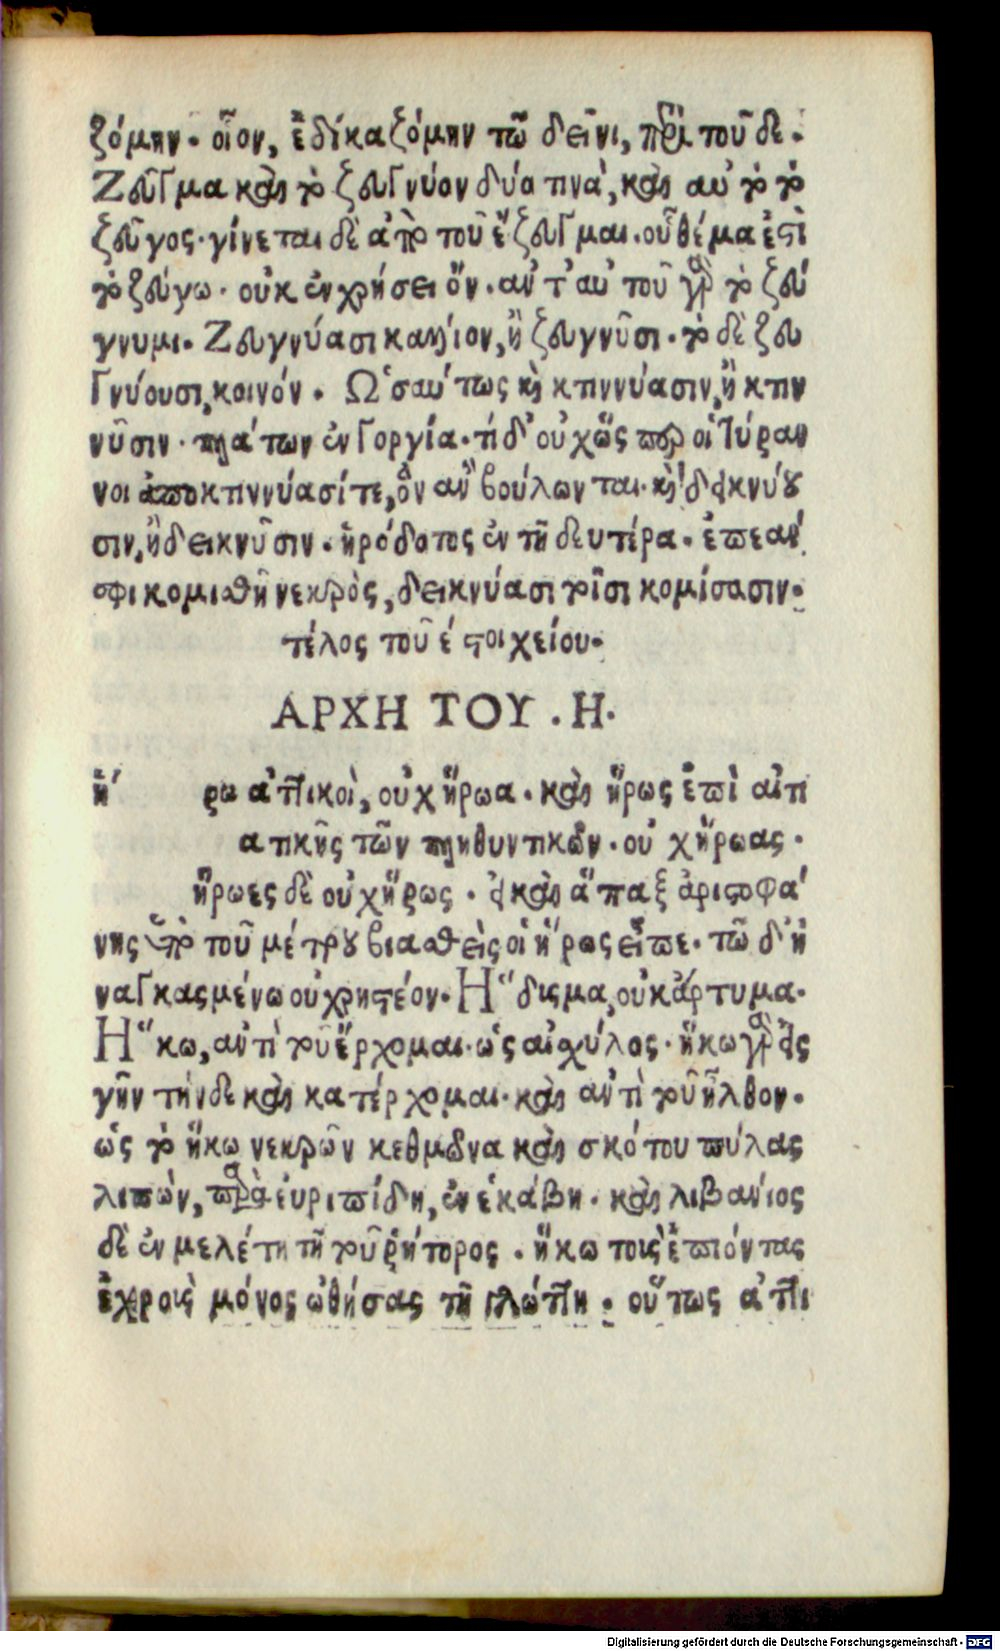 ζόμην. οἷον, ἐδικαζόμην τῶ δεῖνι, περὶ τοῦ δε.
Ζεῦγμα καὶ τὸ ζευγνύον δύο τινὰ, καὶ αὐτὸ τὸ
ζεῦγος. γίνεται δὲ ἀπὸ τοῦ ἔζευγμαι. οὗ θέμα ἐστὶ
τὸ ζεύγω. οὐκ ἐν χρήσει ὄν. ἀντ' αὐτοῦ γὰρ τὸ ζεύ
γνυμι. Ζευγνύασι κάλλιον, ἢ ζευγνῦσι. τὸ δὲ ζευ
γνύουσι, κοινόν. Ὡσαύτως καὶ κτιννύασιν, ἢ κτιν
νῦσιν. πλάτων ἐν Γοργία. τί δ' οὐχ ὥσπερ οἱ τύραν
νοι ἀποκτιννύασί τε, ὃν ἂν βούλωνται. καὶ δεικνύου
σιν, ἢ δεικνῦσιν. ἡρόδοτος ἐν τῆ δευτέρα. ἐπεάν
σφι κομισθῆ νεκρὸς, δεικνύασι τοῖσι κομίσασιν.
τέλος τοῦ ε στοιχείου.
ΑΡΧΗ ΤΟΥ . Η.
ἥρω ἀττικοὶ, οὐχ ἥρωα. καὶ ἥρως ἐπὶ αἰτι
ατικῆς τῶν πληθυντικῶν. οὐχ ἥρωας.
ἥρωες δὲ οὐχ ἥρως. εἰ καὶ ἅπαξ ἀριστοφά
νης ὑπὸ τοῦ μέτρου βιασθεὶς οἱ ἥρως εἶπε. τῶ δ' ἠ
ναγκασμένω οὐ χρηστέον. Ἥδισμα, οὐκ ἄρτυμα.
Ἥκω, ἀντὶ τοῦ ἔρχομαι. ὡς αἰσχύλος. ἥκω γὰρ εἰς
γῆν τήνδε καὶ κατέρχομαι. καὶ ἀντὶ τοῦ ἦλθον.
ὡς τὸ ἥκω νεκρῶν κευθμῶνα καὶ σκότου πύλας
λιπών, παρὰ εὐριπίδη, ἐν ἑκάβη. καὶ λιβανίος
δὲ ἐν μελέτη τῆ τοῦ ῥήτορος. ἥκω τοὺς ἐπιόντας
ἐχθροὺς μόνος ὠθήσας τῆ γλώττη. οὕτως ἀττι
Digitalisierung gefördert durch die Deutsche Forschungsgemeinschaft - DFG